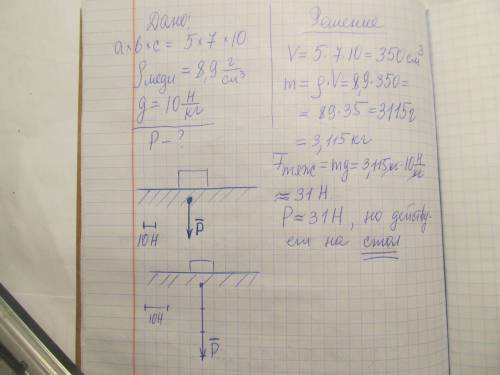 Дано:
a×b×c = 5×7×10
ρмеди = 8,9 г/см³
g = 10 Н/кг
P – ?
10Н
P̅
10Н
P̅
Решение
V = 5·7·10 = 350 см³
m = ρ·V = 8,9·350 =
= 89·35 = 3115 г
= 3,115 кг
Fтяж = mg = 3,115 кг·10 Н/кг
≈ 31 Н
P ≈ 31 Н, но действу-
ет на стол